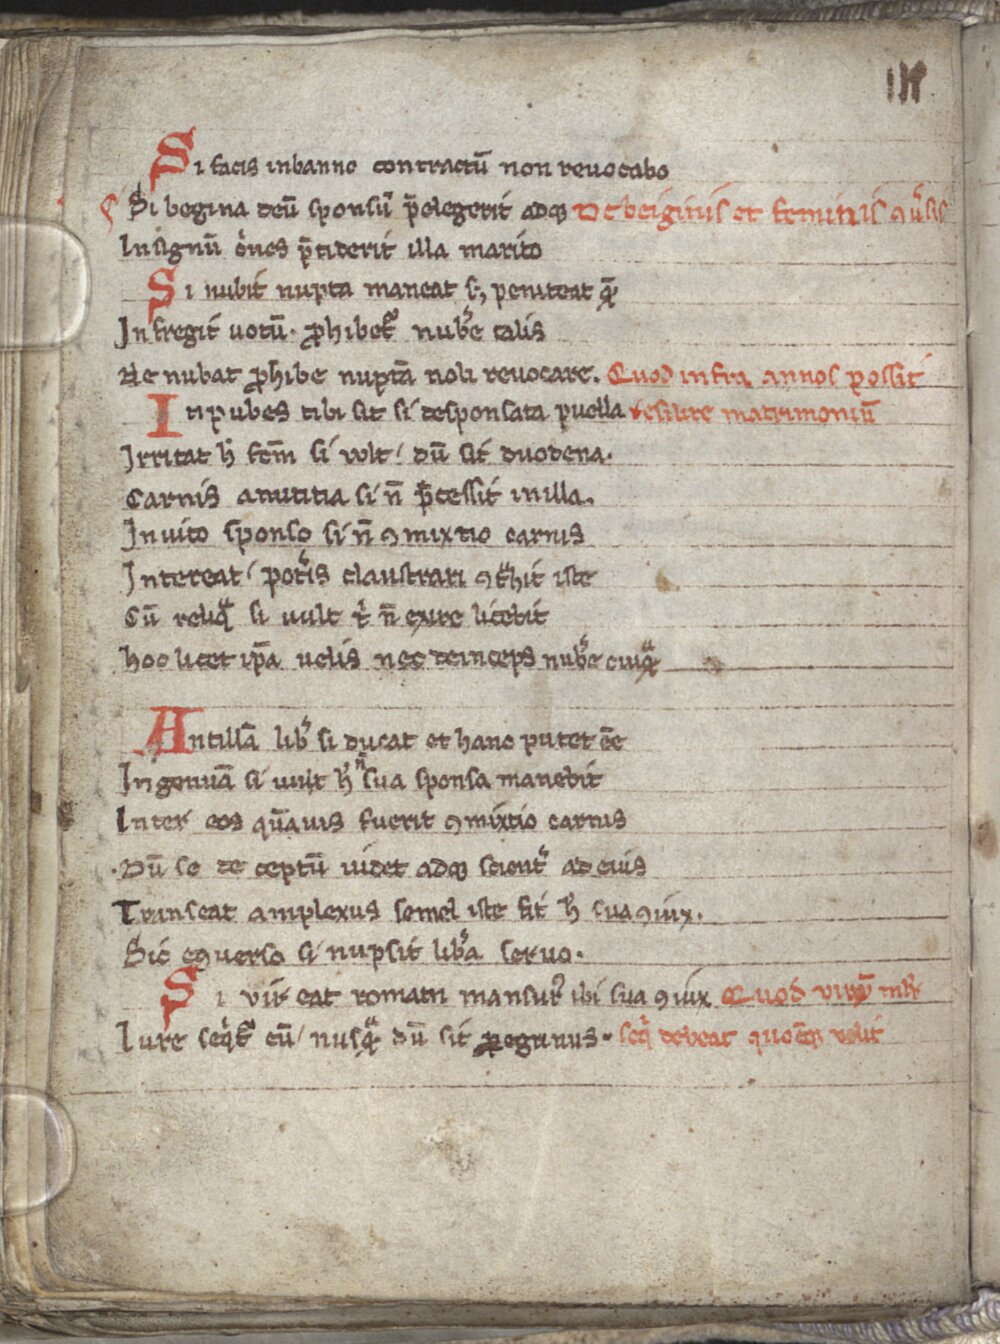 Si facis inbanno contractũ non revocabo
Si begina deũ sponsũ p̃elegerit adq; De beiginis et feminis
In signũ p̃titerit illa marito
Si nubit nupta maneat sȝ peniteat
Infregit uotũ. ꝓhibet᷑ nub̾e talis
Ne nubat ꝓhibe nuptã noli revocare. Quod infra annos possit
Inpubes tibi sit si desponsata puella matrimoniũ
Irritat h̾ fc̃m si volt / dũ sit duodena.
Carnis si ñ p̃cessit inilla.
Inuito sponso si ñ ꝯmixtio carnis
Intereat / claustrari iste
Cũ si uult ñ exire licebit
hoc licet ip̃a uelis nec deinceps nub̾e
Ancillã lib̾ si ducat et hanc putet ẽe
Ingenuã si uult sua sponsa manebit
Inter eos fuerit ꝯmixtio carnis
Dũ se de ceptũ uidet adq; scient̾ ad eius
Transeat amplexus semel iste sit h̾ sua ꝯiux.
Sic eꝯuerso si nupsit lib̾a seruo.
Si vir eat romam mansur᷑ ibi sua ꝯiux Quod
Iure cũ / dũ sit ꝑegrinus. debeat velit